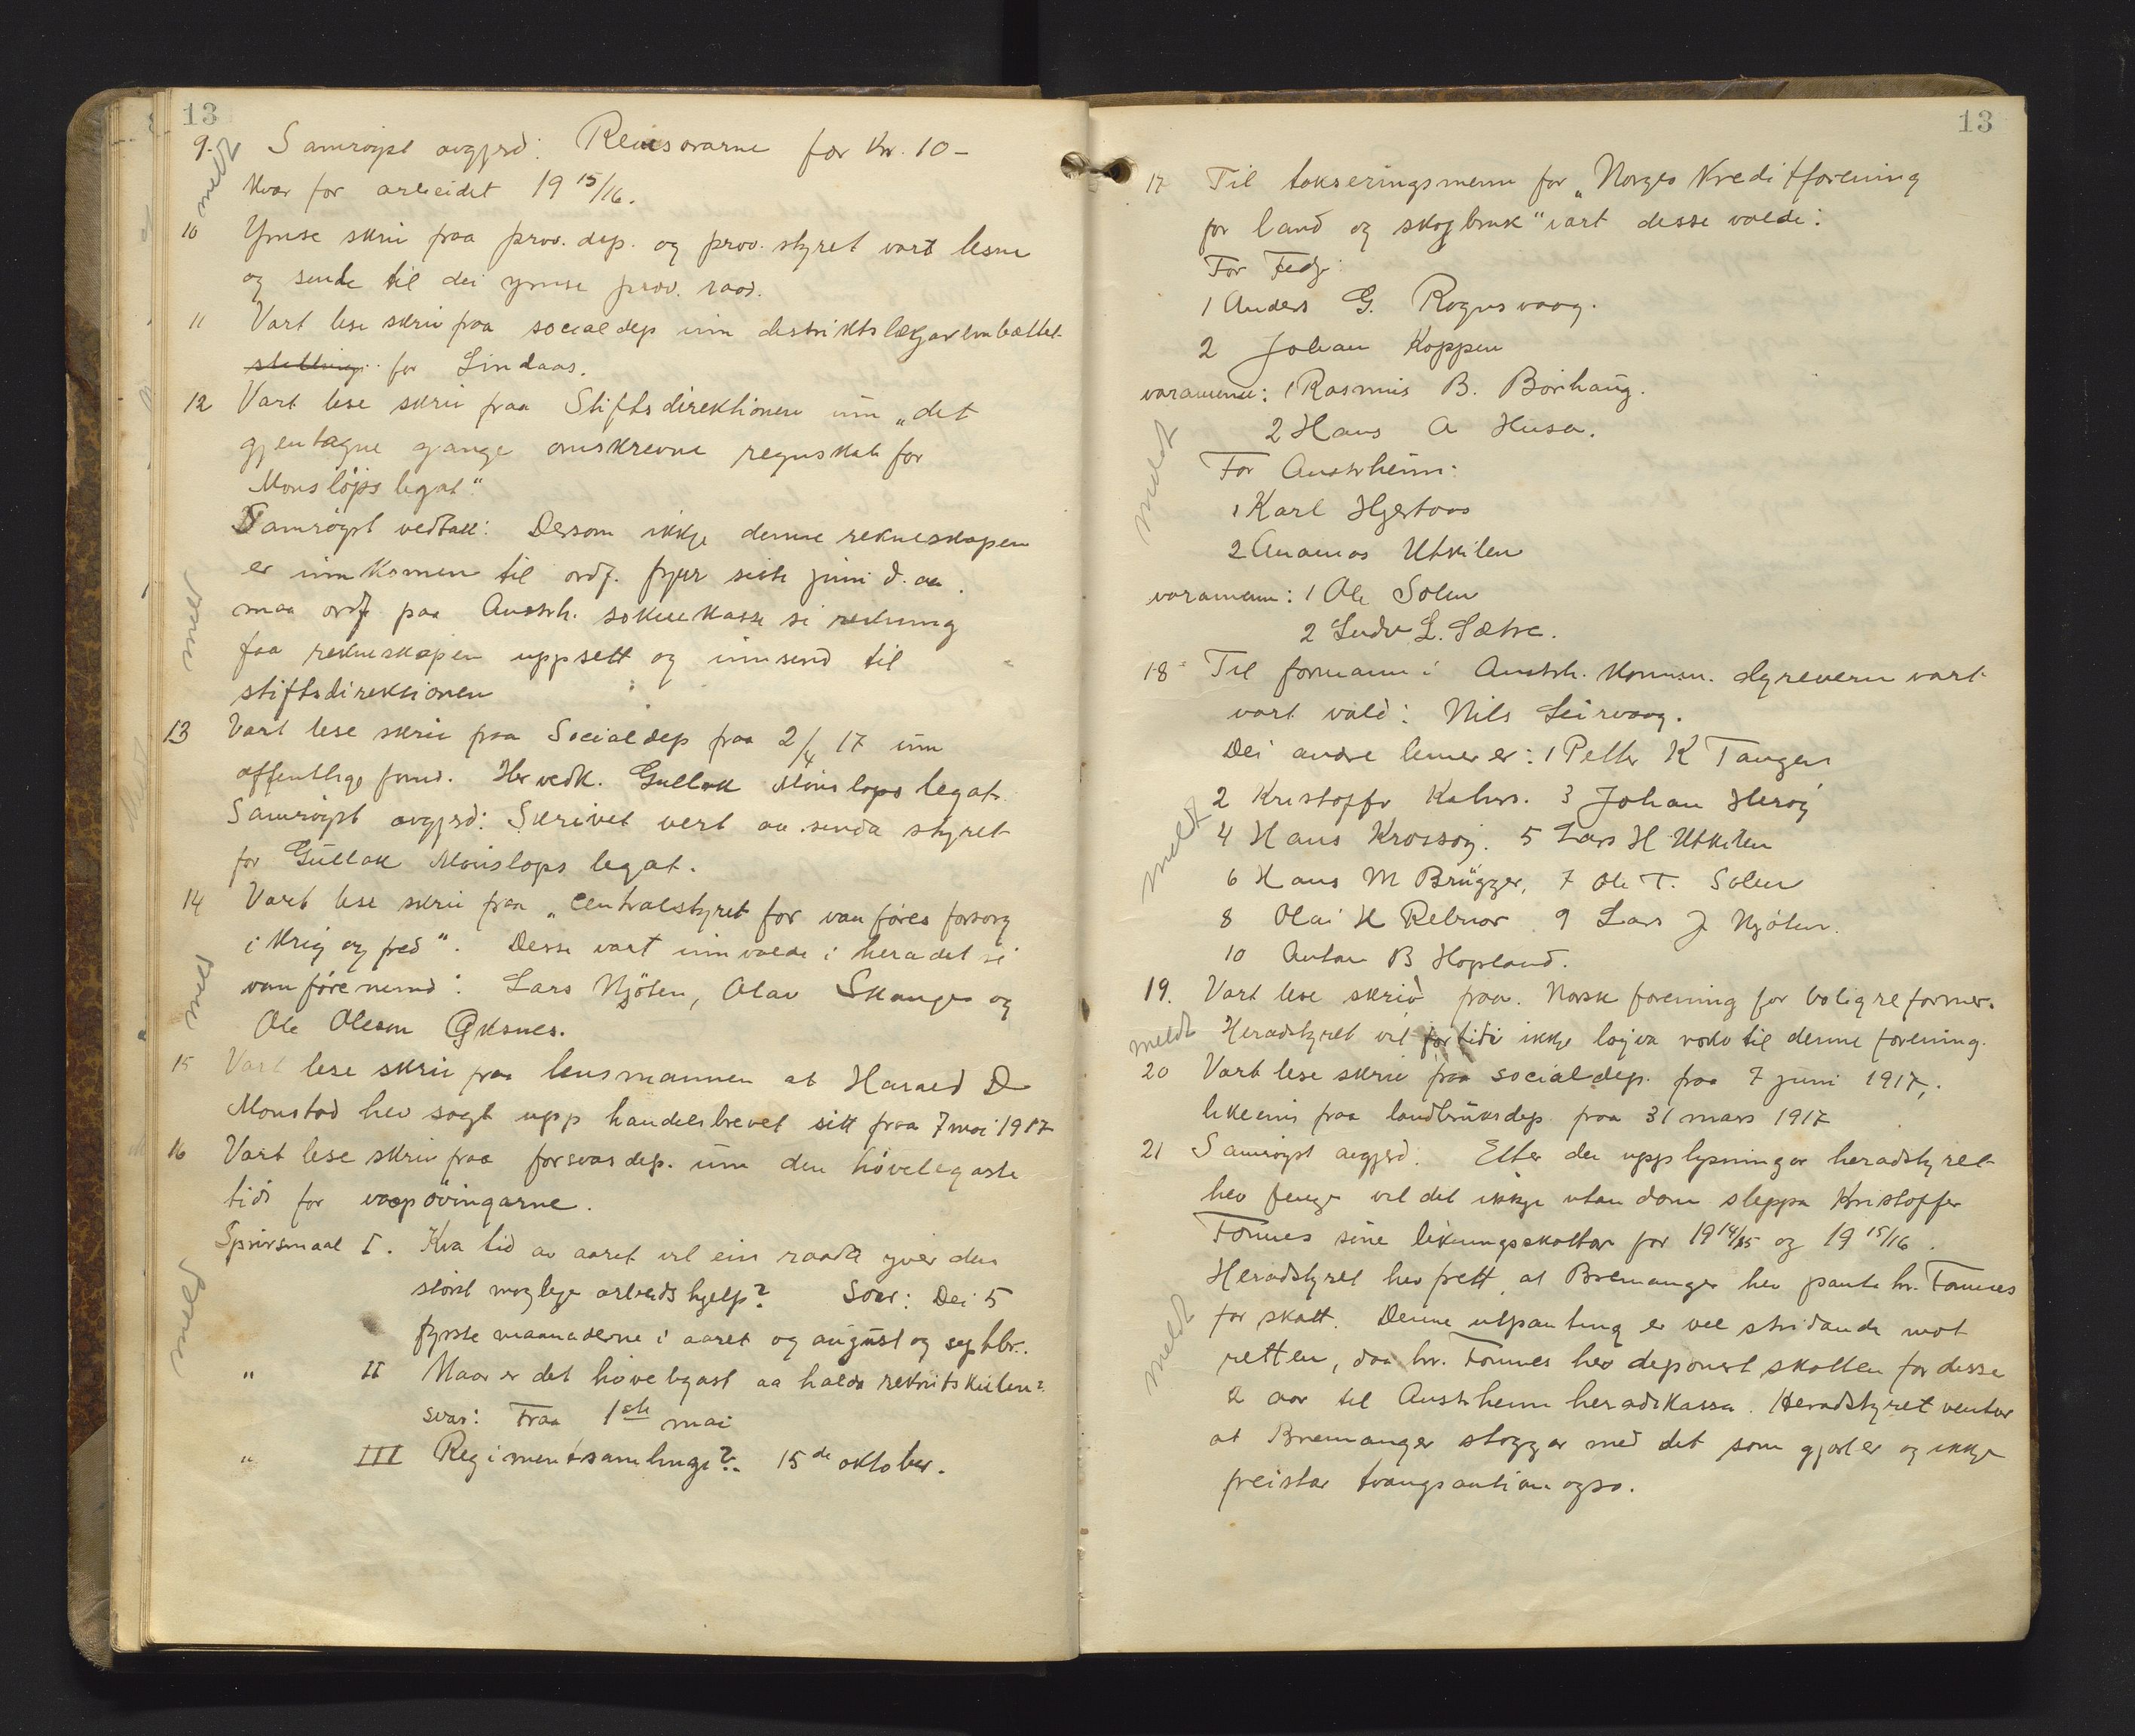 13
9. Samrøyst avgjerd: Revisorarne fær Kr. 10 -
meldt
kvar for arbeidet 19 15/16.
10 Ymse skriv fraa prov. dep. og prov. styret vart lesne
og sende til dei ymse prov. raad.
11 Vart lese skriv fraa socialdep um distriktslækjarembættet
for Lindaas.
12 Vart lese skriv fraa Stiftsdirektionen um „det
gjentagne gange omskrevne regnskab for
Monsløps legat."
Samrøyst vedtak: Dersom ikkje denne rekneskapen
er innkomen til ordf. fyrr siste juni d. aa.
maa ordf. paa Austrh. soknekasse si rekning
meldt
faa rekneskapen uppsett og innsend til
stiftsdirektionen
13 Vart lese skriv fraa Socialdep fraa 2/4 17 um
offentlige fond. Her vedk. Gullak Monslops legat.
Samrøyst avgjerd: Skrivet vert aa senda styret
for Gullak Monslops legat.
14 Vart lese skriv fraa „Centralstyret for vanføres forsorg
i krig og fred". Desse vart innvalde i heradet si
meldt
vanførenemd: Lars Njøten, Olav Skauge og
Ole Oleson Øksnes.
15 Vart lese skriv fraa lensmannen at Harald D
Monstad hev sagt upp handelsbrevet sitt fraa 7 mai 1917
16 Vart lese skriv fraa forsvarsdep. um den høvelegaste
tidi for vaapøvingarne.
Spursmaal I. Kva tid av aaret vil ein raada yver den
meldt
størst moglege arbeidshjelp? Svar: Dei 5
fyrste maanaderne i aaret og august og septbr.
" II Naar er det høvelegast aa halda rekrutskulen?
svar: Fraa 1ste mai
" III Regimentsamlinge? 15de oktober.
13
17 Til takseringsmenn for „Norges Kreditforening
for land og skogbruk" vart desse valde:
For Fedje:
1 Anders G. Rognsvaag.
2 Johan Koppen
varamenn: 1 Rasmus B. Børhaug.
2 Hans A Husa.
meldt
For Austrheim:
1 Karl Hjertaas
2 Ananias Utkilen
varamenn: 1 Ole Solen
2 Ludv L. Sætre.
18 Til formann i Austrh. kommn. styrevern vart
vart vald: Nils Leirvaag.
Dei andre lemer er: 1 Petter K Tangen
2 Kristoffer Kalvs. 3 Johan Herøy
meldt
4 Hans Krossøy. 5 Lars H Utkilen
6 Hans M Brügger, 7 Ole T. Solen
8 Olai H Rebnor. 9 Lars J Njøten.
10 Anton B Hopland.
19. Vart lese skriv fraa. Norsk forening for boligreformer.
meldt
Heradstyret vil for tidi ikkje løyva noko til denne forening.
20 Vart lese skriv fraa socialdep. fraa 7 juni 1917,;
likeeins fraa landbruksdep. fraa 31 mars 1917
21 Samrøyst avgjerd. Etter dei upplysningar heradstyret
hev fenge vil det ikkje utan dom sleppa Kristoffer
Fonnes sine likningsskattar for 19 14/15 og 19 15/16.
Heradstyret hev frett, at Bremanger hev panta hr. Fonnes
for skatt. Denne utpanting er vel stridande mot
meldt
retten, daa hr. Fonnes hev deponert skatten for desse
2 aar til Austrheim heradskassa. Heradstyret ventar
at Bremanger stoggar med det som gjort er og ikkje
freistar tvangsauktion ogso.